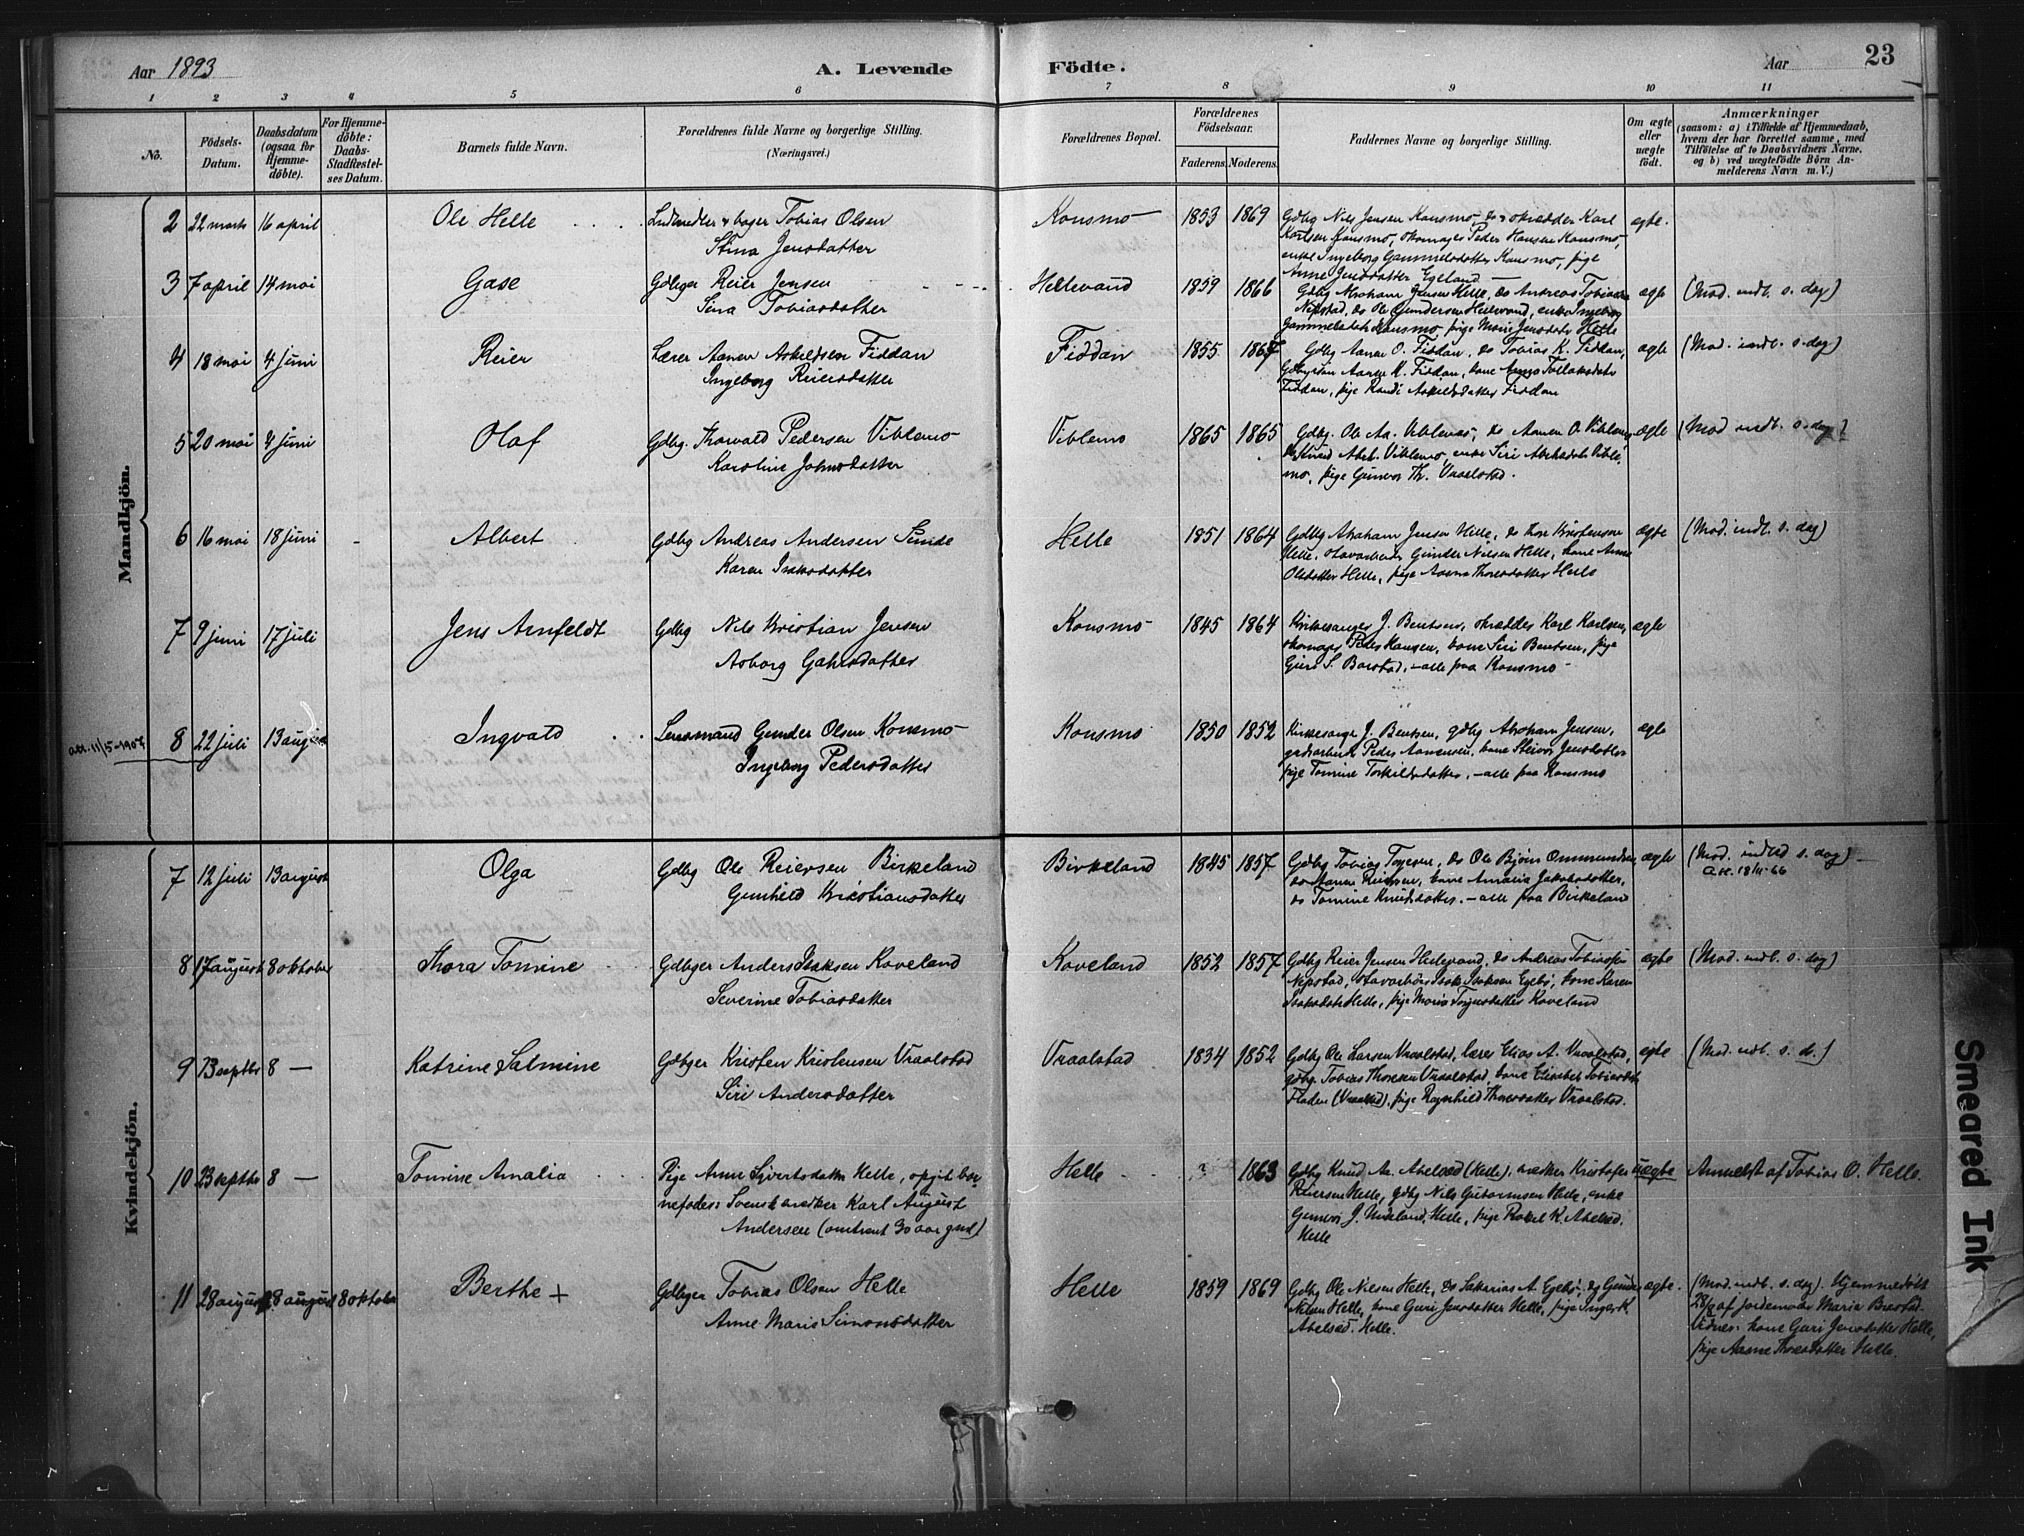 Aar 1893
A. Levende Födte.
Aar
23
1 2 3 4 5 6 7 8 9 10 11
No.
Födsels-Datum.
Daabsdatum (ogsaa for Hjemme-döbte).
For Hjemme-döbte: Daabs-Stadfæstel-ses Datum.
Barnets fulde Navn.
Forældrenes fulde Navne og borgerlige Stilling. (Næringsvei.)
Forældrenes Bopæl.
Forældrenes Födselsaar.
Faderens. Moderens.
Faddernes Navne og borgerlige Stilling.
Om ægte eller uægte födt.
Anmærkninger (saasom: a) i Tilfælde af Hjemmedaab, hvem der har forrettet samme, med Tilföielse af to Daabsvidners Navne, og b) ved uægtefödte Börn Anmelderens Navn m. V.)
Mandkjön.
2 22 marts 16 april Ole Helle
Tobias Olsen
Stina Jensdatter
Konsmo 1853 1869
Gdbg Nils Jensen Konsmo, do skrædder Karl
Karlsen Konsmo, skomager Peder Hansen Konsmo,
enke Ingeborg Gammelsdatter Konsmo, pige
Anne Jensdatter Egeland
ægte.
3 7 april 14 moi Gase
Gdbger Reier Jensen
Sina Tobiasdatter
Hellevand 1859 1866
Gdbg Abraham Jensen Helle, do Andreas Tobiassen
Nepstad, do Ole Gundersen Heilevand, enke Ingeborg
Gammelsdatt Konsmo pige Maris Jensdatr Helle
ægte (Mod. indl. s. dag)
4 18 moi 4 juni Reier
Lærer Aanen Askildsen Fiddan
Ingeborg Reiersdatter
Fiddan 1855 1867
Gdbg Aanen O. Fiddan, do Tobias K. Fiddan,
Aanen K. Fiddan, kone Anne Tollaksdatr
Fiddan, pige Randi Askildsdatter Fiddan
ægte (Mod. indl. s. dag)
5 20 moi 4 juni Olaf
Gdbg. Thorvald Pedersen Viblemo
Karoline Johnsdatter
Viblemo 1865 1865
Gdbg. Ole Aa. Viblemo, do Aanen O. Viblemo,
do Knud Abel. Viblemo, enke Siri Abelsdatr Vible-
mo, pige Gunvor Th. Vraalstad.
ægte (Mod indl. s. dag)
6 16 moi 18 juni Albert
Gdbg Andreas Andersen Sunde
Karen Isaksdatter
Helle 1851 1864
Gdbg Abraham Jensen Helle, do Thore Kristensen
Helle, Gunder Nilsen Helle, kone Anne
Olsdatter Helle, pige Aasne Thoresdatter Helle
ægte (Mod. indl. s. dag)
7 9 juni 17 juli Jens Arnfeldt
Gdbg Nils Kristian Jensen
Asborg Gabrielsdatter
Konsmo 1845 1864
Kirkesanger J. Bentsen, skrædder Karl Karlsen,
skomager Peder Hansen, kone Siri Bentsen, pige
Guri S. Barstad, – alle fra Konsmo –
ægte
att. 11/5-1907
8 22 juli 13 august Ingvald
Lensmand Gunder Olsen Konsmo
Ingeborg Pedersdatter
Konsmo 1850 1852
Kirkesanger J. Bentsen, gdbg Abraham Jensen,
Peder Aanensen, kone Jensdatter
pige Tomine Torkildsdatter, – alle fra Konsmo
ægte
Kvindekjön.
7 12 juli 13 august Olga
Gdbg Ole Reiersen Birkeland
Gunhild Kristiansdatter
Birkeland 1845 1857
Gdbg Tobias Torjesen, do Ole Bjørn Ommundsen,
do Aanen Reiersen, kone Amalia Jakobsdatter,
do Tomine Knudsdatter. – alle fra Birkeland
ægte (Mod. indled s. dag)
att. 18/11-66
8 17 august 8 oktober Thora Tomine
Gdbger Anders Isaksen Koveland
Severine Tobiasdatter
Koveland 1852 1857
Gdbg Reier Jensen Heilevand, do Andreas Tobiassen
Nepstad, Isak Isaksen Egebø, kone Karen
Isaksdatr Helle, pige Maris Torjusdatter Koveland
ægte (Mod. indl. s. dag)
9 23 septbr 8 — Katrine Salmine
Gdbger Kristen Kristensen Vraalstad
Siri Andersdatter
Vraalstad 1834 1852
Gdbg Ole Larsen Vraalstad, lærer Elias A. Vraalstad,
gdbg. Tobias Thoresen Vraalstad, kone Elisabet Tobiasdatr
Fladen (Vraalstad), pige Ragnhild Thoresdatter Vraalstad.
ægte (Mod. indl. s. d.)
10 23 septbr 8 — Tomine Amalia
Pige Anne Sjvertsdatter Helle, opgit bar-
nefader: Svensk snekker Karl August
Andersen (omtrent 30 aar gml)
Helle ? 1863
Gdbg Knud Aa. Abelsæd (Helle), snekker Kristofer
Reiersen Helle, gdbg Nils Guttormsen Helle, enke
Gunvor J. Helle, pige Rakel K. Abelsæd.
Helle
uægte Anmeldt af Tobias O. Helle.
11 28 august 28 august 8 oktober Berthe +
Gdbger Tobias Olsen Helle
Anne Maris Simonsdatter
Helle 1859 1869
Gdbg Ole Nilsen Helle, do Sakarias A. Egebø, do Gunder
Nilsen Helle, kone Guri Jensdatter Helle, pige Inger K.
Abelsæd. Helle.
ægte.
(Mod. indl. s. dag). Hjemmedøbt
28/8 af jordemoder Maria
Vidner: kone Guri Jensdatter Helle,
pige Aasne Thoresdatter Helle.
Smeared Ink